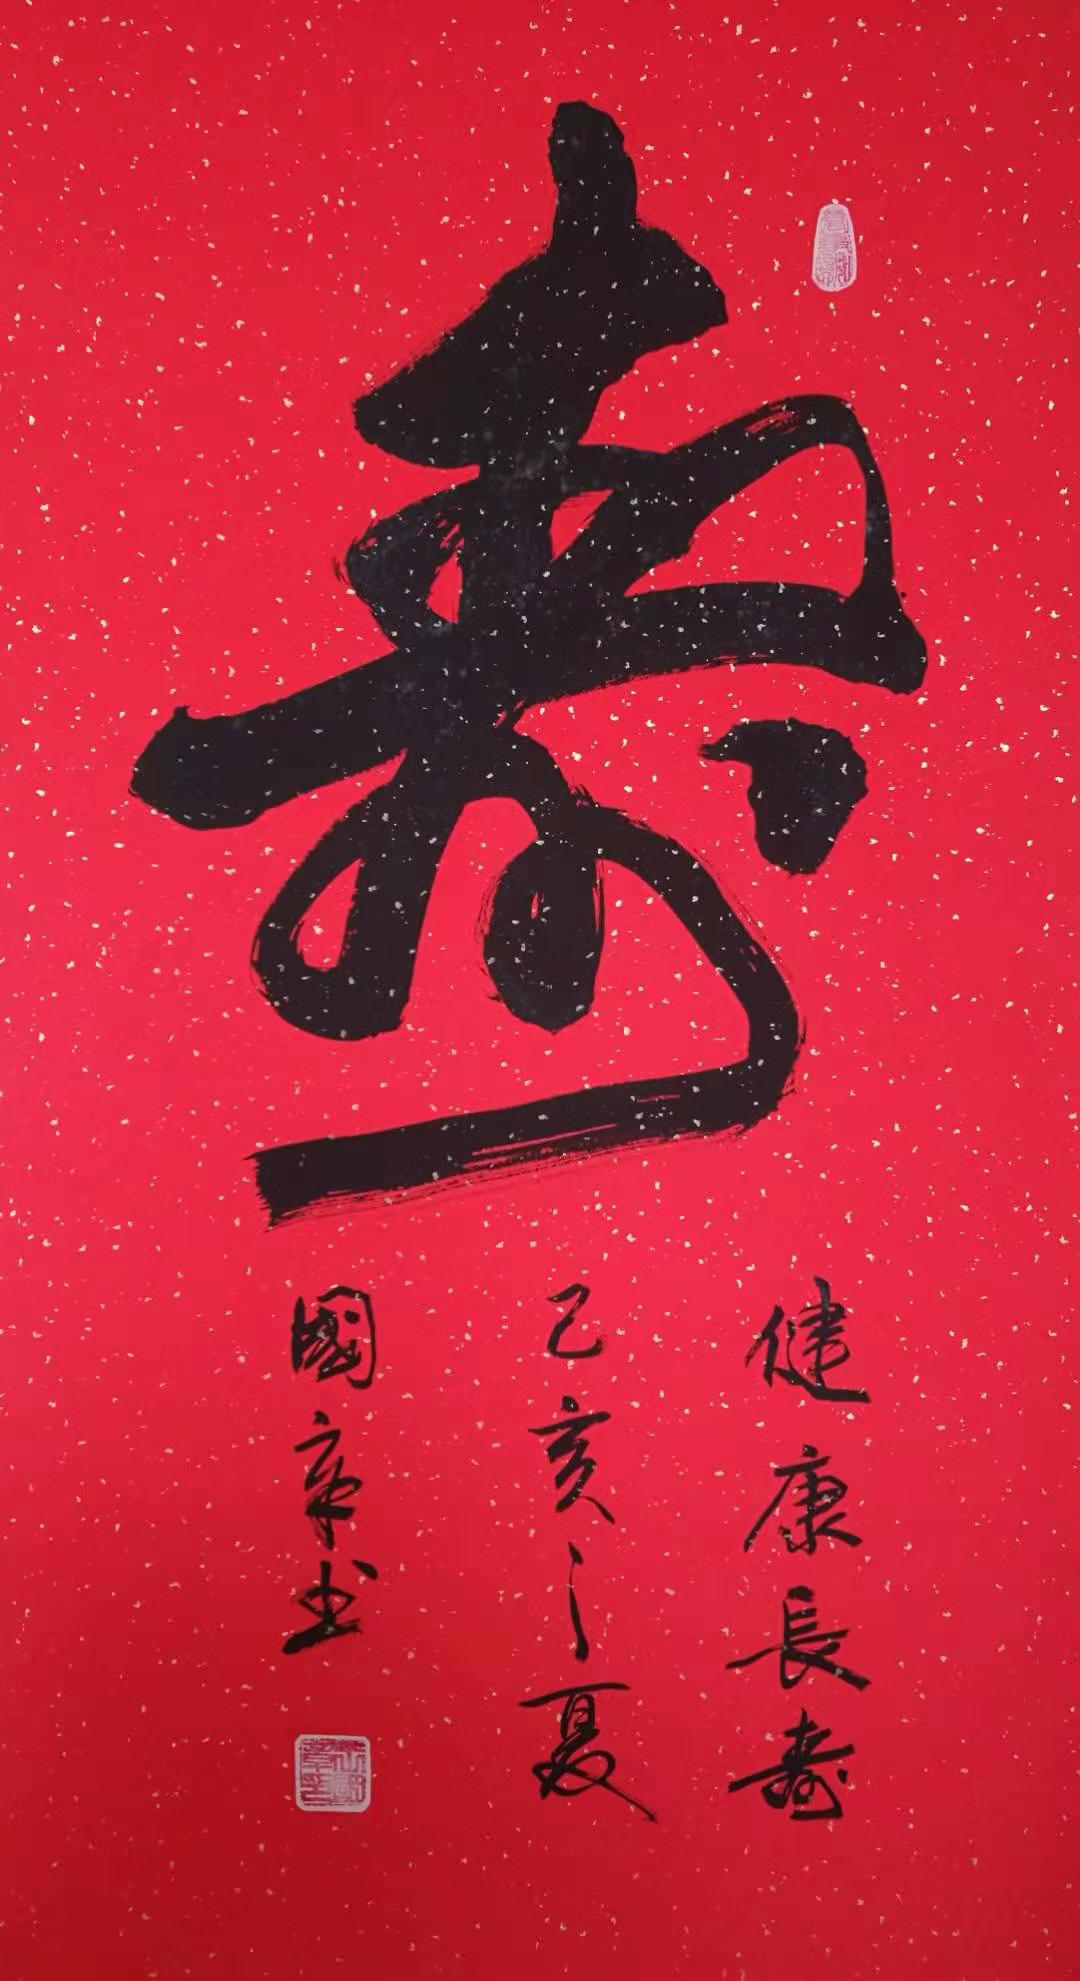 壽
健康長壽
己亥之夏
國章書